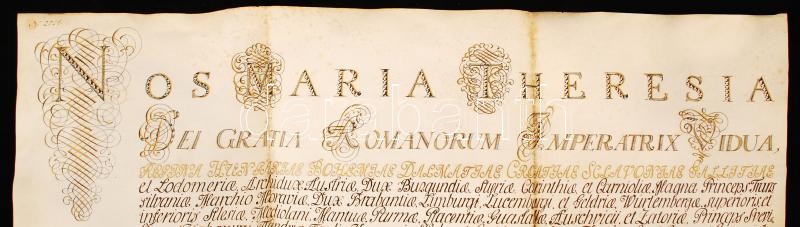 Nº
NOS MARIA THERESIA
DEI GRATIA ROMANORUM IMPERATRIX VIDUA,
REGINA HUNGARIAE BOHEMIAE DALMATIAE CROATIAE SCLAVONIAE GALLITIAE
et Lodomeriæ, Archidux Austriæ, Dux Burgundiæ, Styriæ, Corinthiæ, et Carnioliæ, Magna Princeps Trans
silvaniæ, Marchio Moraviæ, Dux Brabantiæ, Limburgi, Lucemburgi, et Geldriæ, Würtembergæ, superioris et
inferioris Silesiæ, Mediolani, Mantuæ, Parmæ, Placentiæ, Guastallæ, Auschvicii, et Zatoriæ, Princeps Svevi